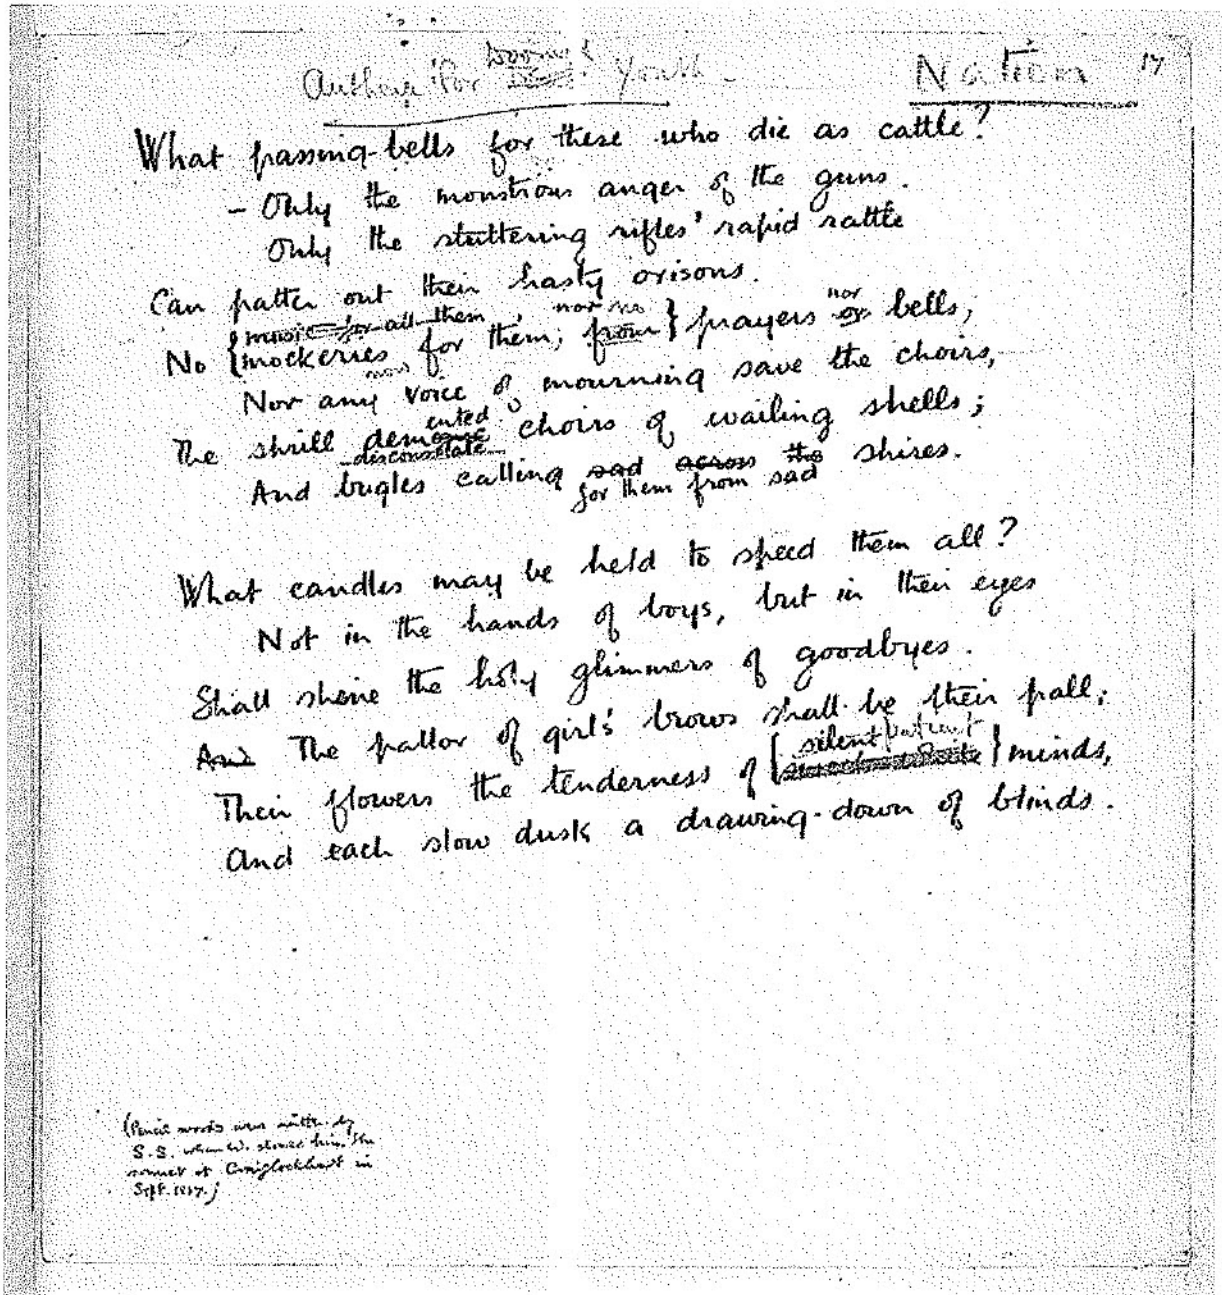 Anthem for Doomed Youth - Nation 17
What passing-bells for these who die as cattle?
- Only the monstrous anger of the guns.
Only the stuttering rifles' rapid rattle
Can patter out their hasty orisons.
music for all them, nor no nor
No { mockeries for them; from } prayers or bells,
Nor any voice of mourning save the choirs,
ented
The shrill demented choirs of wailing shells;
disconsolate
And bugles calling sad across the shires.
for them from sad
What candles may be held to speed them all?
Not in the hands of boys, but in their eyes
Shall shine the holy glimmers of goodbyes.
And The pallor of girls' brows shall be their pall;
silent patient
Their flowers the tenderness of { } minds,
And each slow dusk a drawing-down of blinds.
(Pencil words were written by
S.S. when W. showed him the
sonnet at Craiglockhart in
Sept. 1917.)